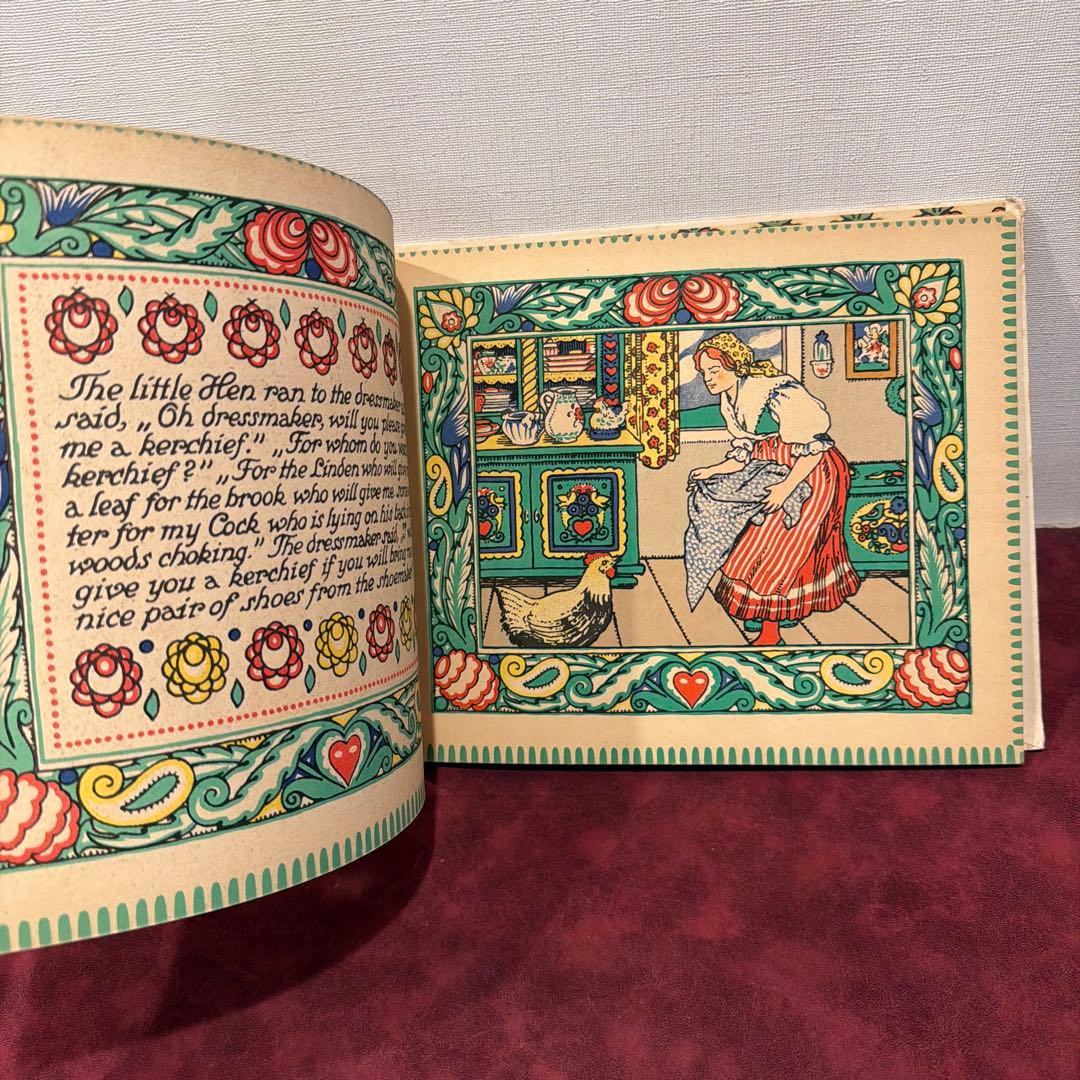 The little Hen ran to the dressmaker
said, „Oh dressmaker, will you please
me a kerchief." „For whom do you
kerchief?" „For the Linden who will
a leaf for the brook who will give me
ter for my Cock who is lying on his back
woods choking." The dressmaker said,
give you a kerchief if you will bring
nice pair of shoes from the